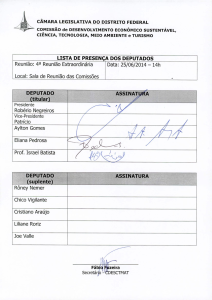 CÂMARA LEGISLATIVA DO DISTRITO FEDERAL
COMISSÃO de DESENVOLVIMENTO ECONÔMICO SUSTENTÁVEL,
CIÊNCIA, TECNOLOGIA, MEIO AMBIENTE e TURISMO
LISTA DE PRESENÇA DOS DEPUTADOS
Reunião: 4ª Reunião Extraordinária Data: 25/06/2014 – 14h
Local: Sala de Reunião das Comissões
DEPUTADO ASSINATURA
(titular)
Presidente
Robério Negreiros
Vice-Presidente
Patrício
Aylton Gomes
Eliana Pedrosa
Prof. Israel Batista
DEPUTADO ASSINATURA
(suplente)
Rôney Nemer
Chico Vigilante
Cristiano Araújo
Liliane Roriz
Joe Valle
Secretário - CDESCTMAT